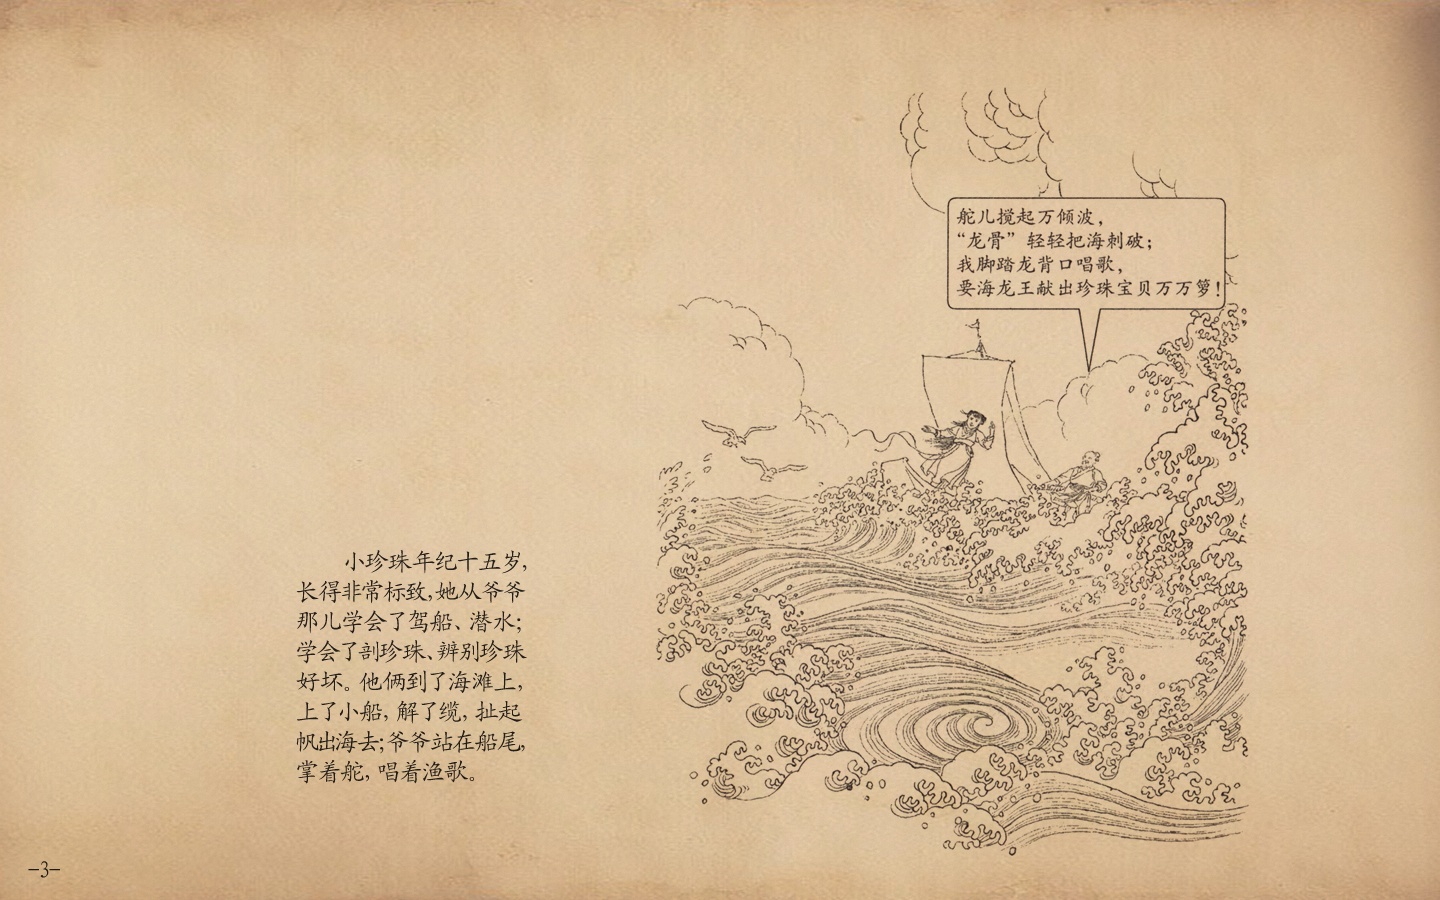 舵儿搅起万倾波，
“龙骨”轻轻把海刺破；
我脚踏龙背口唱歌，
要海龙王献出珍珠宝贝万万箩！
小珍珠年纪十五岁，
长得非常标致，她从爷爷
那儿学会了驾船、潜水；
学会了剖珍珠、辨别珍珠
好坏。他俩到了海滩上，
上了小船，解了缆，扯起
帆出海去；爷爷站在船尾，
掌着舵，唱着渔歌。
-3-